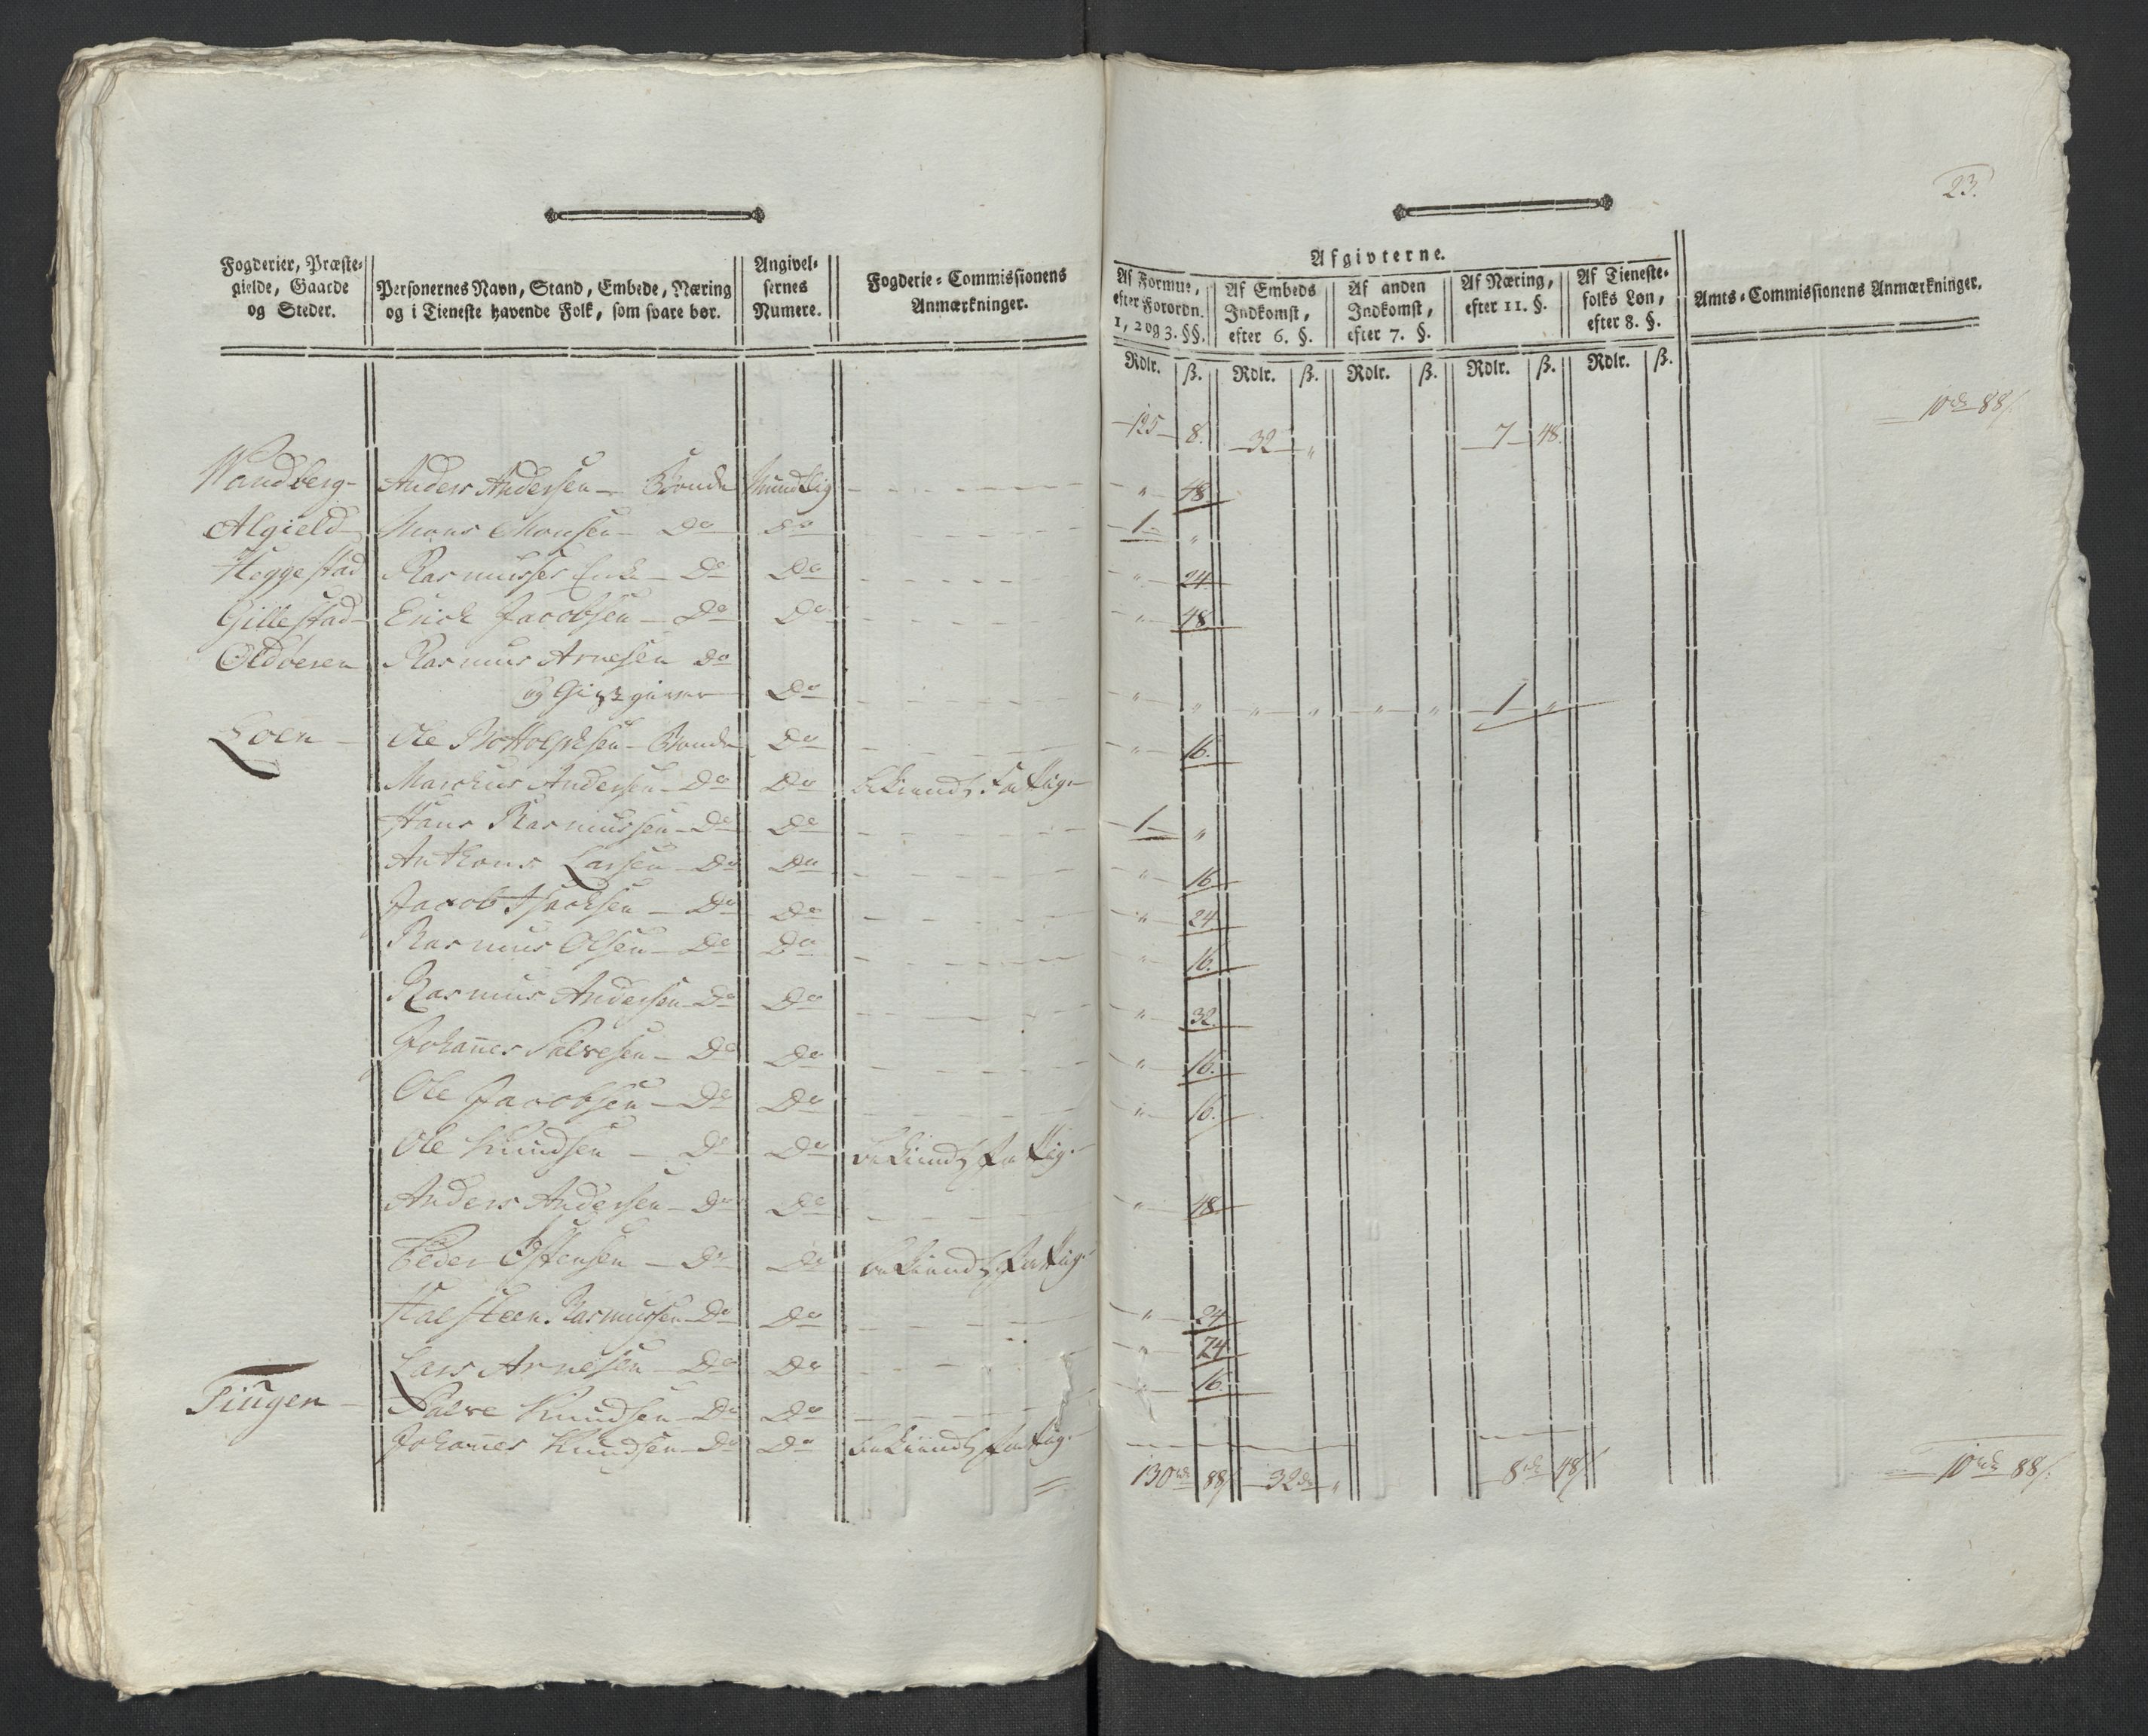 23.
Fogderier, Præste-gielde, Gaarde og Steder.
Personernes Navn, Stand, Embede, Næring og i Tieneste havende Folk, som svare bør.
Angivel-sernes Numere.
Fogderie-Commissionens Anmærkninger.
Afgivterne.
Af Formue, efter Forordn. 1, 2 og 3. §§.
Af Embeds Indkomst, efter 6. §.
Af anden Indkomst, efter 7. §.
Af Næring, efter 11. §.
Af Tieneste-folks Løn, efter 8. §.
Amts-Commissionens Anmærkninger.
Rdlr. ß. Rdlr. ß. Rdlr. ß. Rdlr. ß. Rdlr. ß.
125 8. 32 " 7 48 10 rd 88 ß.
Wandberg Anders Andersen Bonde Mundtlig " 48
Algield Mons Monsen Do Do 1 "
Heggestad Rasmusses Enke Do Do " 24
Gillestad Erick Jacobsen Do Do " 48
Oldøren Rasmus Arnesen Do
og Giestgiver Do " " " " " " 1 "
Loen Ole Bottolphsen Bonde Do " 16.
Marckus Andersen Do Do bekiendt Fattig
Hans Rasmussen Do Do 1 "
Anthons Larsen Do Do " 16
Jacob Isacksen Do Do " 24
Rasmus Olsen Do Do " 16.
Rasmus Andersen Do Do " 32.
Johannes Salvesen Do Do " 16.
Ole Jacobsen Do Do " 16.
Ole Knudsen Do Do bekiendt fattig.
Anders Andersen Do Do " 48
Peder Ostensen Do Do bekiendt fattig.
Halsteen Rasmussen Do Do " 24
Lars Arnesen Do Do " 24
Tiugen Salve Knudsen Do Do " 16.
Johannes Knudsen Do Do bekiendt fattig.
130 rd 88 ß 32 rd " 8 rd 48 ß 10 rd 88 ß.